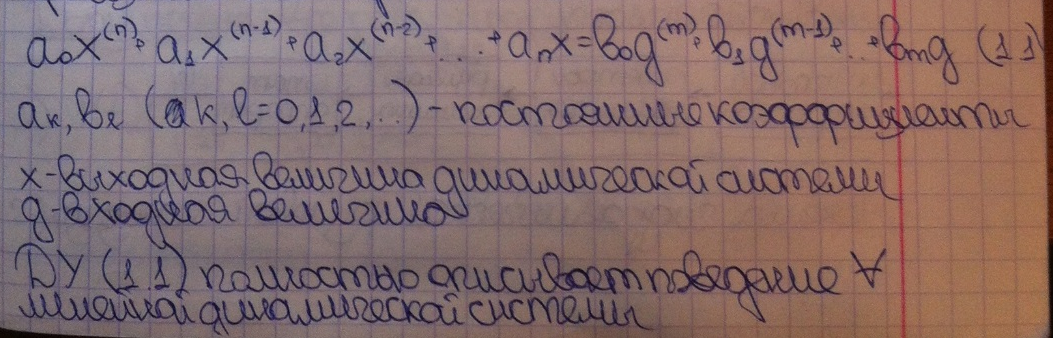 a₀x⁽ⁿ⁾ + a₁x⁽ⁿ⁻¹⁾ + a₂x⁽ⁿ⁻²⁾ + ... + aₙx = b₀g⁽ᵐ⁾ + b₁g⁽ᵐ⁻¹⁾ + ... + bₘg (1.1)
aₖ, bₗ (k, l = 0, 1, 2, ...) - постоянные коэффициенты
x - выходная величина динамической системы
g - входная величина
ДУ (1.1) полностью описывает поведение ∀
линейной динамической системы